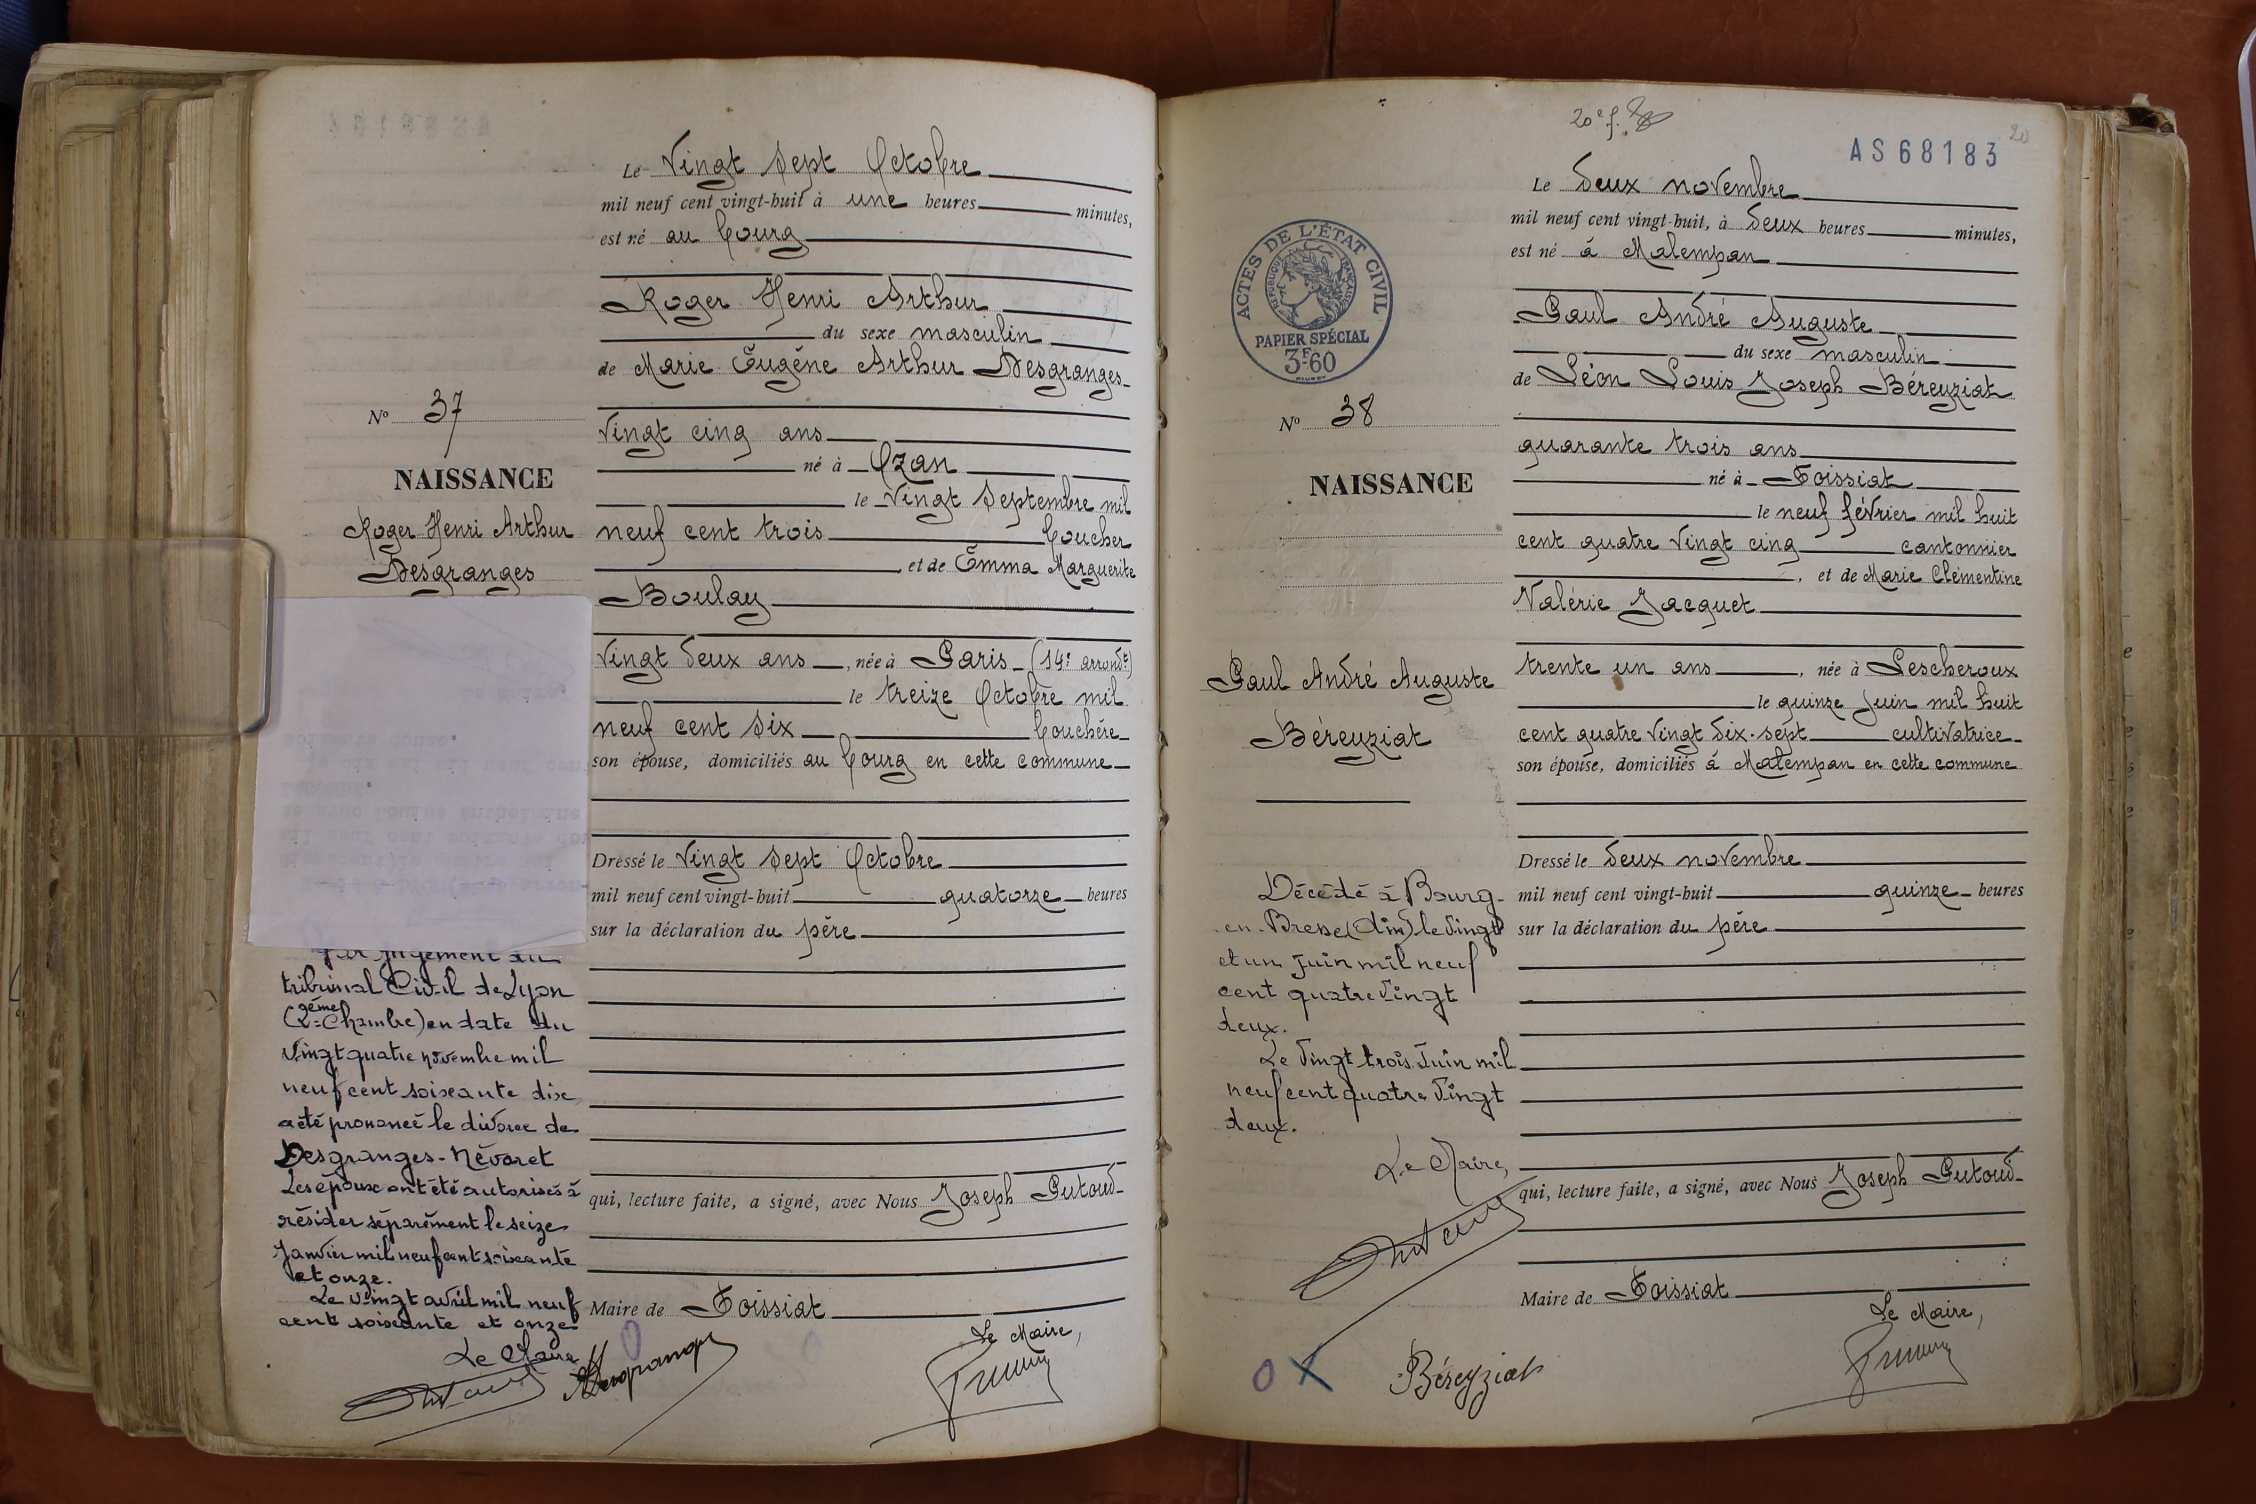 Le Vingt Sept Octobre
mil neuf cent vingt-huit à une heures minutes,
est né au bourg
Roger Henri Arthur
du sexe masculin
de Marie Eugène Arthur Desgranges
Nº 37
vingt cinq ans
né à Ozan
NAISSANCE
le Vingt Septembre mil
Roger Henri Arthur
neuf cent trois boucher
Desgranges
et de Emma Marguerite
Boulay
vingt deux ans, née à Paris (14e arrondt)
le treize Octobre mil
neuf cent six bouchère
son épouse, domiciliés au bourg en cette commune
Dressé le Vingt Sept Octobre
mil neuf cent vingt-huit quatorze heures
sur la déclaration du père
Par jugement du
tribunal Civil de Lyon
(2ème Chambre) en date du
vingt quatre novembre mil
neuf cent soixante dix
a été prononcé le divorce de
Desgranges - Névoret
Les époux ont été autorisés à
résider séparément le seize
Janvier mil neuf cent soixante
et onze.
Le vingt avril mil neuf
cent soixante et onze
Le Maire
qui, lecture faite, a signé, avec Nous Joseph Putoud
Maire de Foissiat
Le Maire,
20e f.
20
AS 68183
Le deux novembre
mil neuf cent vingt-huit, à deux heures minutes,
est né à Malempan
ACTES DE L'ÉTAT CIVIL
RÉPUBLIQUE FRANÇAISE
PAPIER SPÉCIAL
3F60
Paul André Auguste
du sexe masculin
de Léon Louis Joseph Béreyziat
Nº 38
quarante trois ans
né à Foissiat
NAISSANCE
le neuf février mil huit
cent quatre vingt cinq cantonnier
, et de Marie Clémentine
Valérie Jacquet
Paul André Auguste
Béreyziat
trente un ans, née à Lescheroux
le quinze Juin mil huit
cent quatre vingt dix-sept cultivatrice
son épouse, domiciliés à Malempan en cette commune
Dressé le deux novembre
mil neuf cent vingt-huit quinze heures
sur la déclaration du père
Décédé à Bourg-
en-Bresse (Ain) le vingt
et un Juin mil neuf
cent quatre vingt
deux.
Le vingt trois Juin mil
neuf cent quatre vingt
deux.
Le Maire,
qui, lecture faite, a signé, avec Nous Joseph Putoud
Maire de Foissiat
Le Maire,
Béreyziat